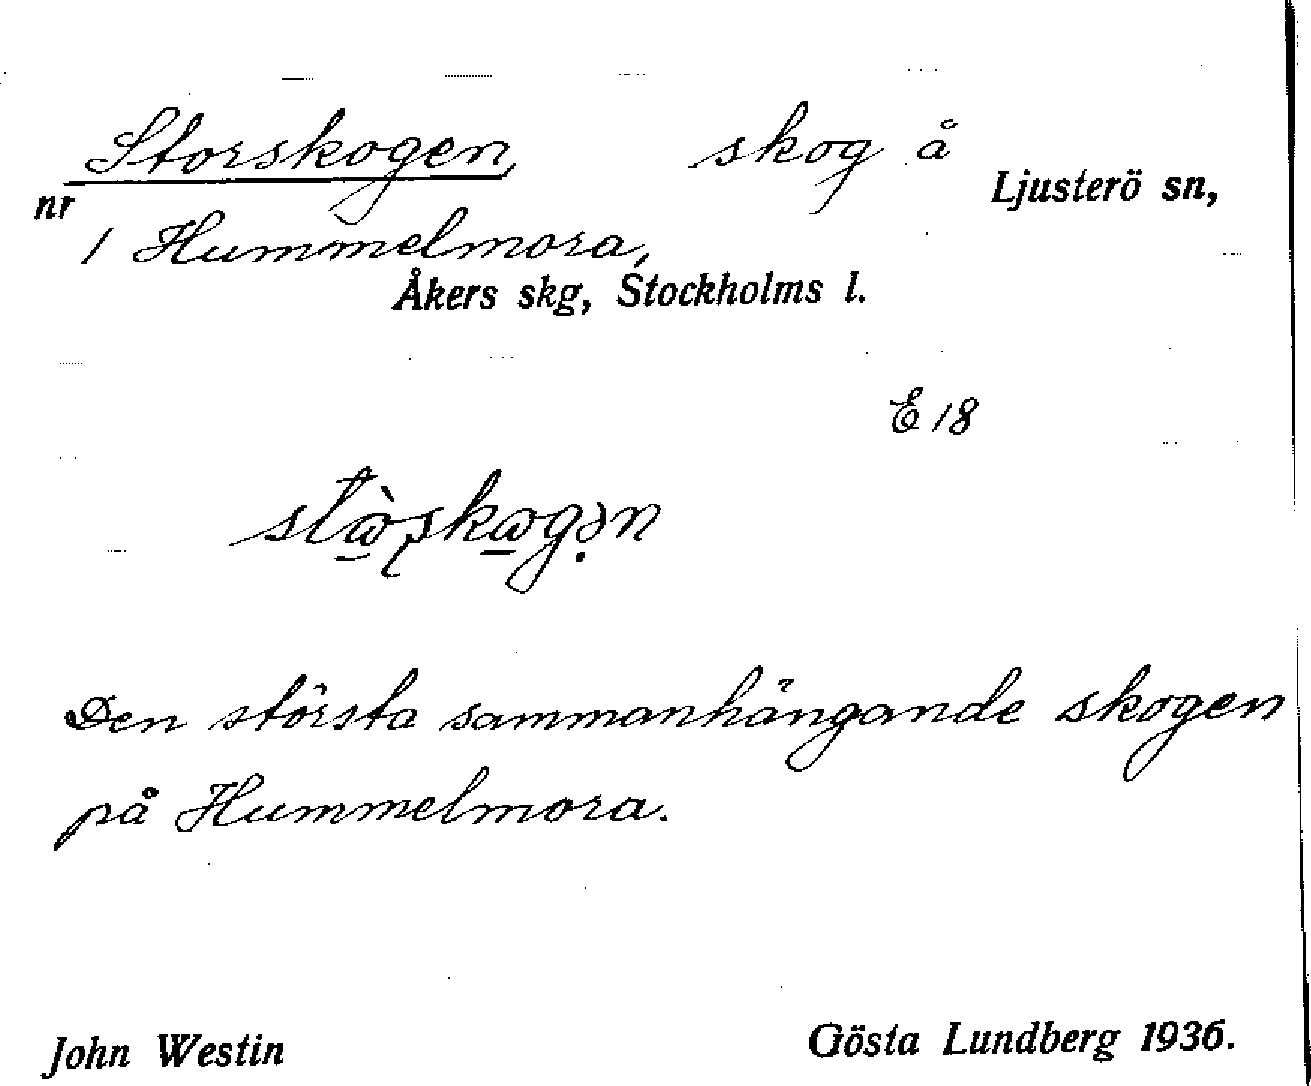 Storskogen, skog å Ljusterö sn,
nr 1 Hummelmora,
Åkers skg, Stockholms l.
E 18
Den största sammanhängande skogen
på Hummelmora.
John Westin Gösta Lundberg 1936.